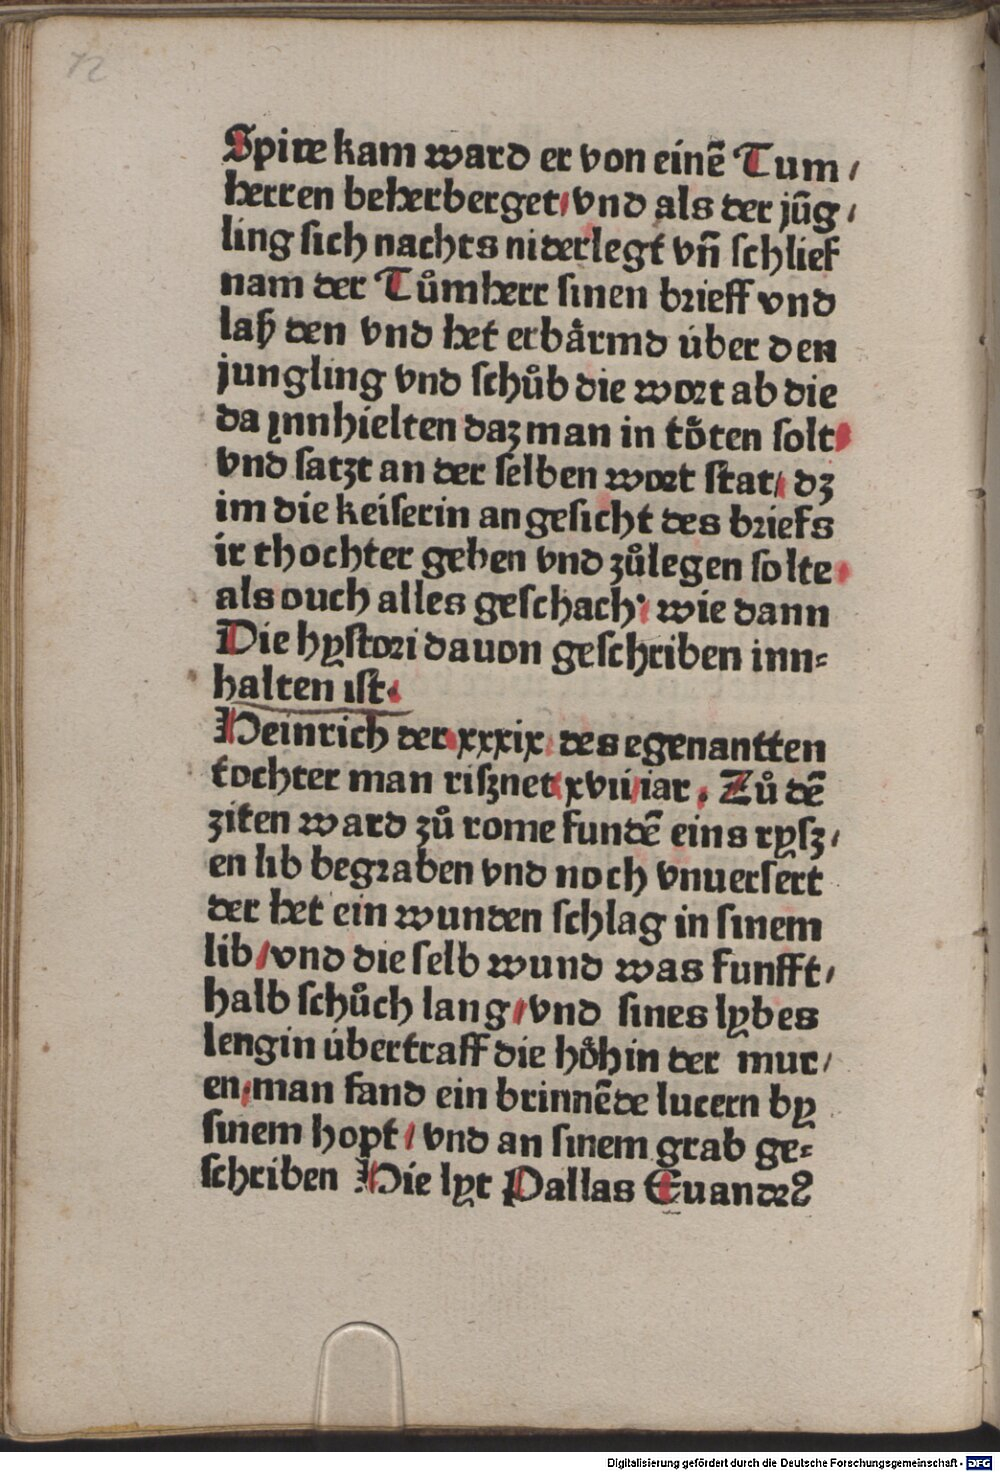 72
Spire kam ward er von einē Tum⸗
herren beherberget/ vnd als der jūg⸗
ling sich nachts niderlegt vn̄ schlief
nam der Tůmherr sinen brieff vnd
laß den vnd het erbårmd über den
jungling vnd schůb die wort ab die
da ynnhielten daz man in tőten solt
vnd satzt an der selben wort stat/ dz
im die keiserin angesicht des briefs
ir thochter geben vnd zůlegen solte
als ouch alles geschach· wie dann
Die hystori dauon geschriben inn⸗
halten ist.
Heinrich der xxxix des egenantten
tochter man risznet xvii iar. Zů dē
ziten ward zů rome fundē eins rysz⸗
en lib begraben vnd noch vnuersert
der het ein wunden schlag in sinem
lib/ vnd die selb wund was funfft⸗
halb schůch lang/ vnd sines lybes
lengin übertraff die hőhin der mur⸗
en. man fand ein brinnēde lucern by
sinem hopt/ vnd an sinem grab ge⸗
schriben Hie lyt Pallas Euandrꝰ
Digitalisierung gefördert durch die Deutsche Forschungsgemeinschaft - DFG